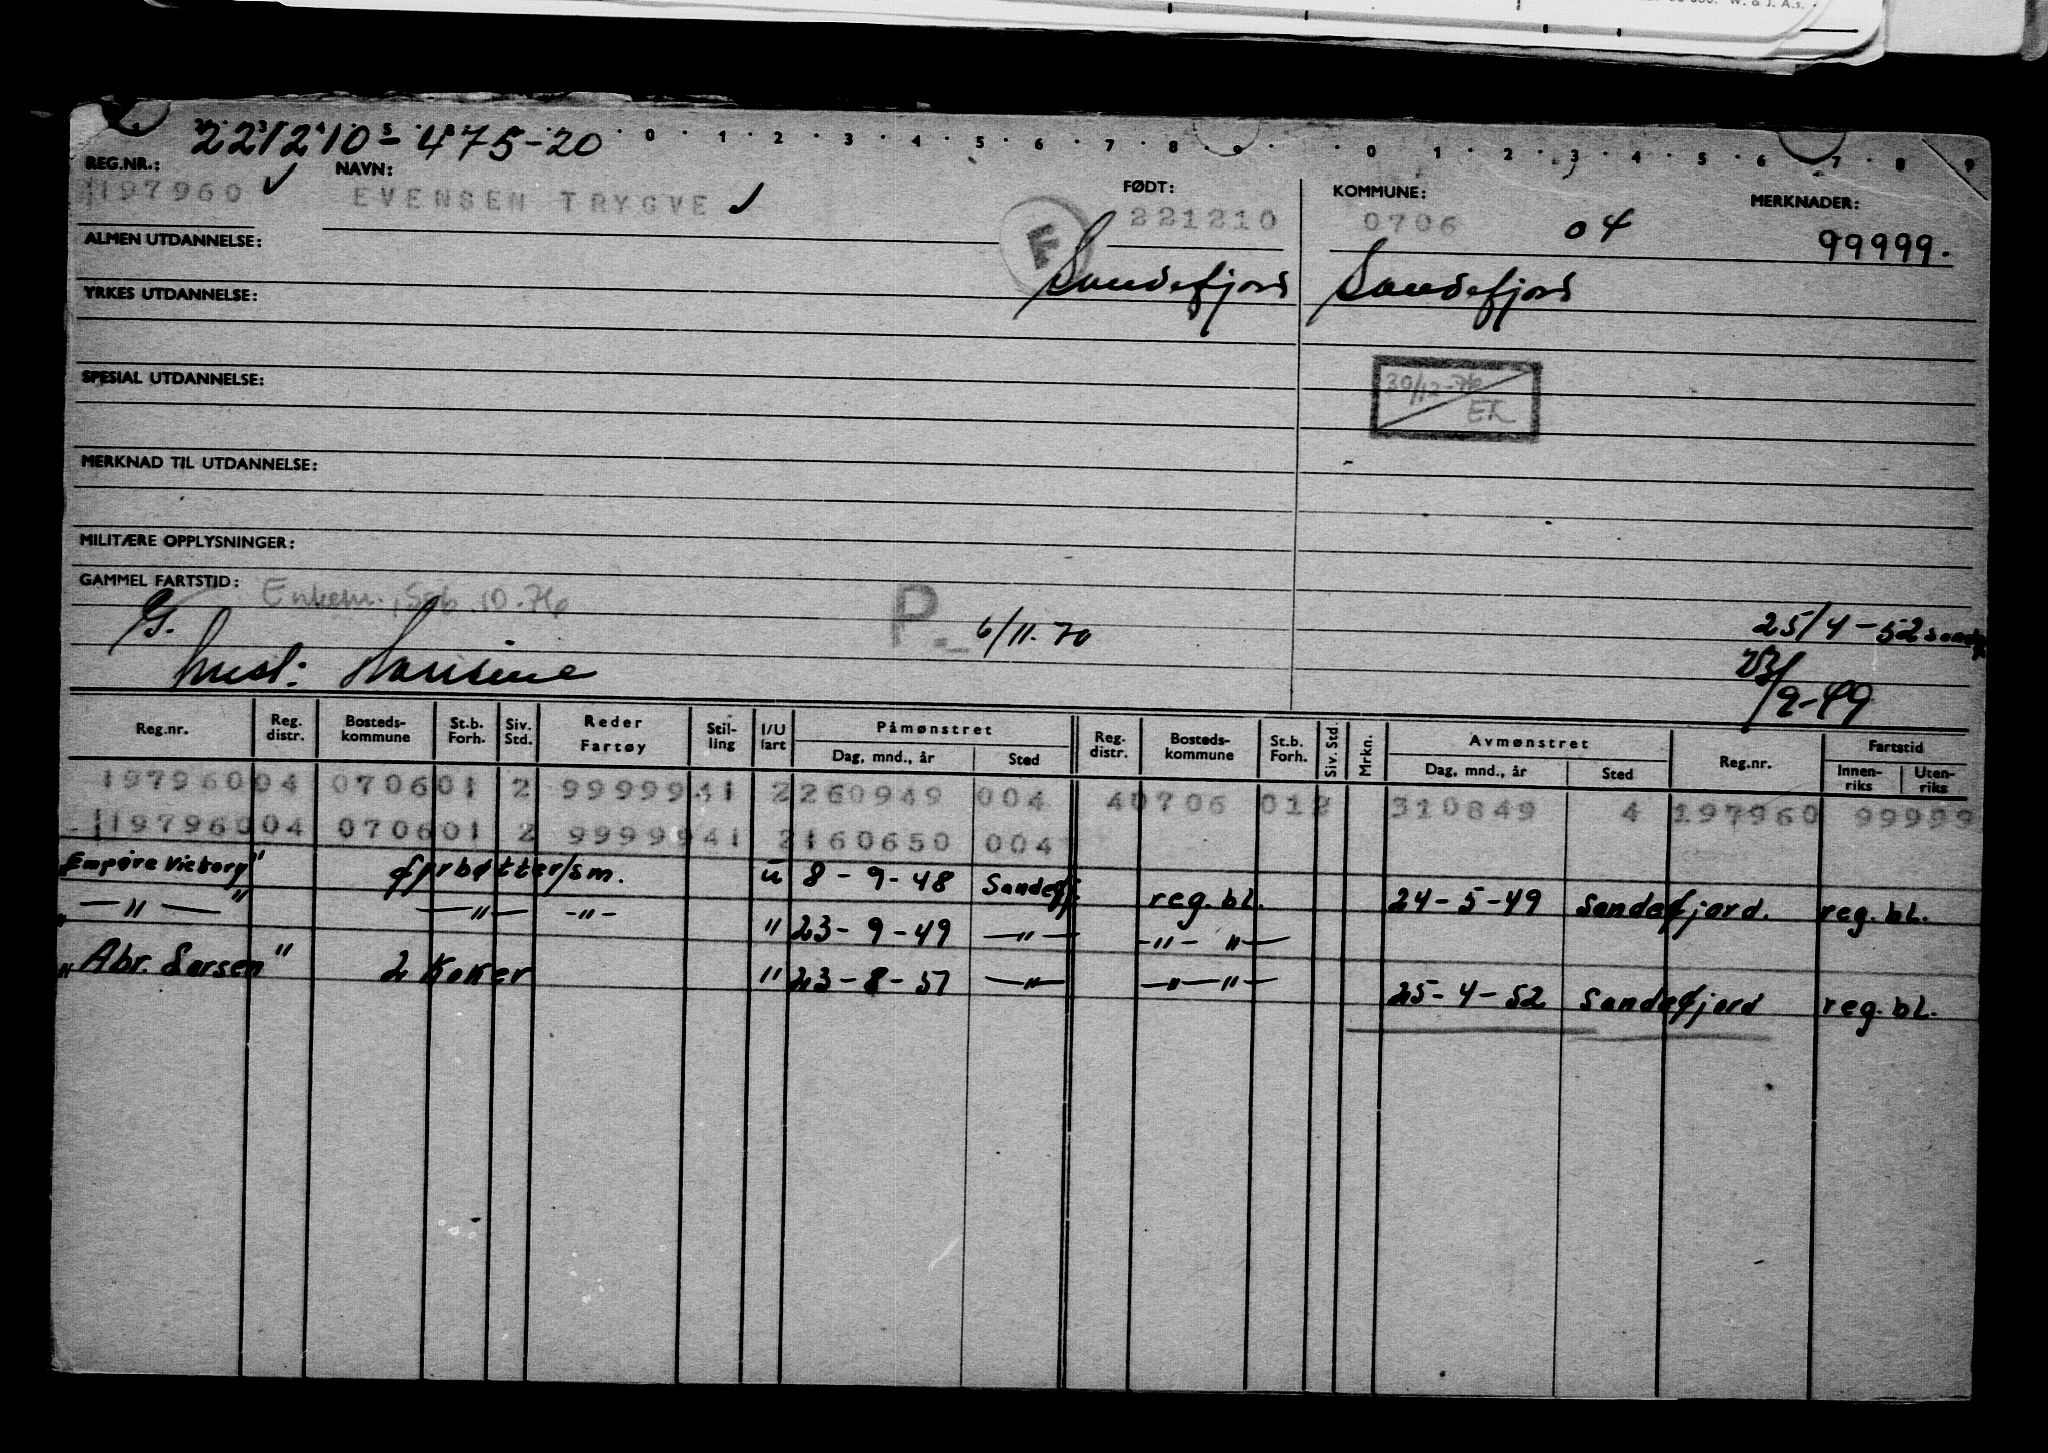 W. & J. A.s.
221210-475-20
0 1 2 3 4 5 6 7 8 9 0 1 2 3 4 5 6 7 8 9
REG.NR.: NAVN: FØDT: KOMMUNE: MERKNADER:
197960 EVENSEN TRYGVE F 221210 0706 04 99999.
ALMEN UTDANNELSE:
Sandefjord Sandefjord
YRKES UTDANNELSE:
SPESIAL UTDANNELSE:
30/12-76
ER
MERKNAD TIL UTDANNELSE:
MILITÆRE OPPLYSNINGER:
GAMMEL FARTSTID: Enkem. Søb. 10.76
G. P. 6/11-70 25/4-52 Sandefj.
23/9-49
Reg.nr. Reg. distr. Bosteds-kommune St.b. Forh. Siv. Std. Reder Fartøy Stil-ling I/U fart Påmønstret Dag, mnd., år Sted Reg. distr. Bosteds-kommune St.b. Forh. Siv. Std. Mrkn. Avmønstret Dag, mnd., år Sted Reg.nr. Fartstid Innen-riks Uten-riks
197960 04 0706 01 2 99999 41 2 260949 004 4 0706 01 2 310849 4 197960 99999
197960 04 0706 01 2 99999 41 2 160650 004
Empire Victory" fyrbøtter/sm. u 8-9-48 Sandefj. reg. bl. 24-5-49 Sandefjord. reg. bl.
" —"— " —"— -"- " 23-9-49 —"— -"- "—
" Abr. Larsen " 2 Kokker " 23-8-51 —"— —"—"— 25-4-52 Sandefjord reg. bl.